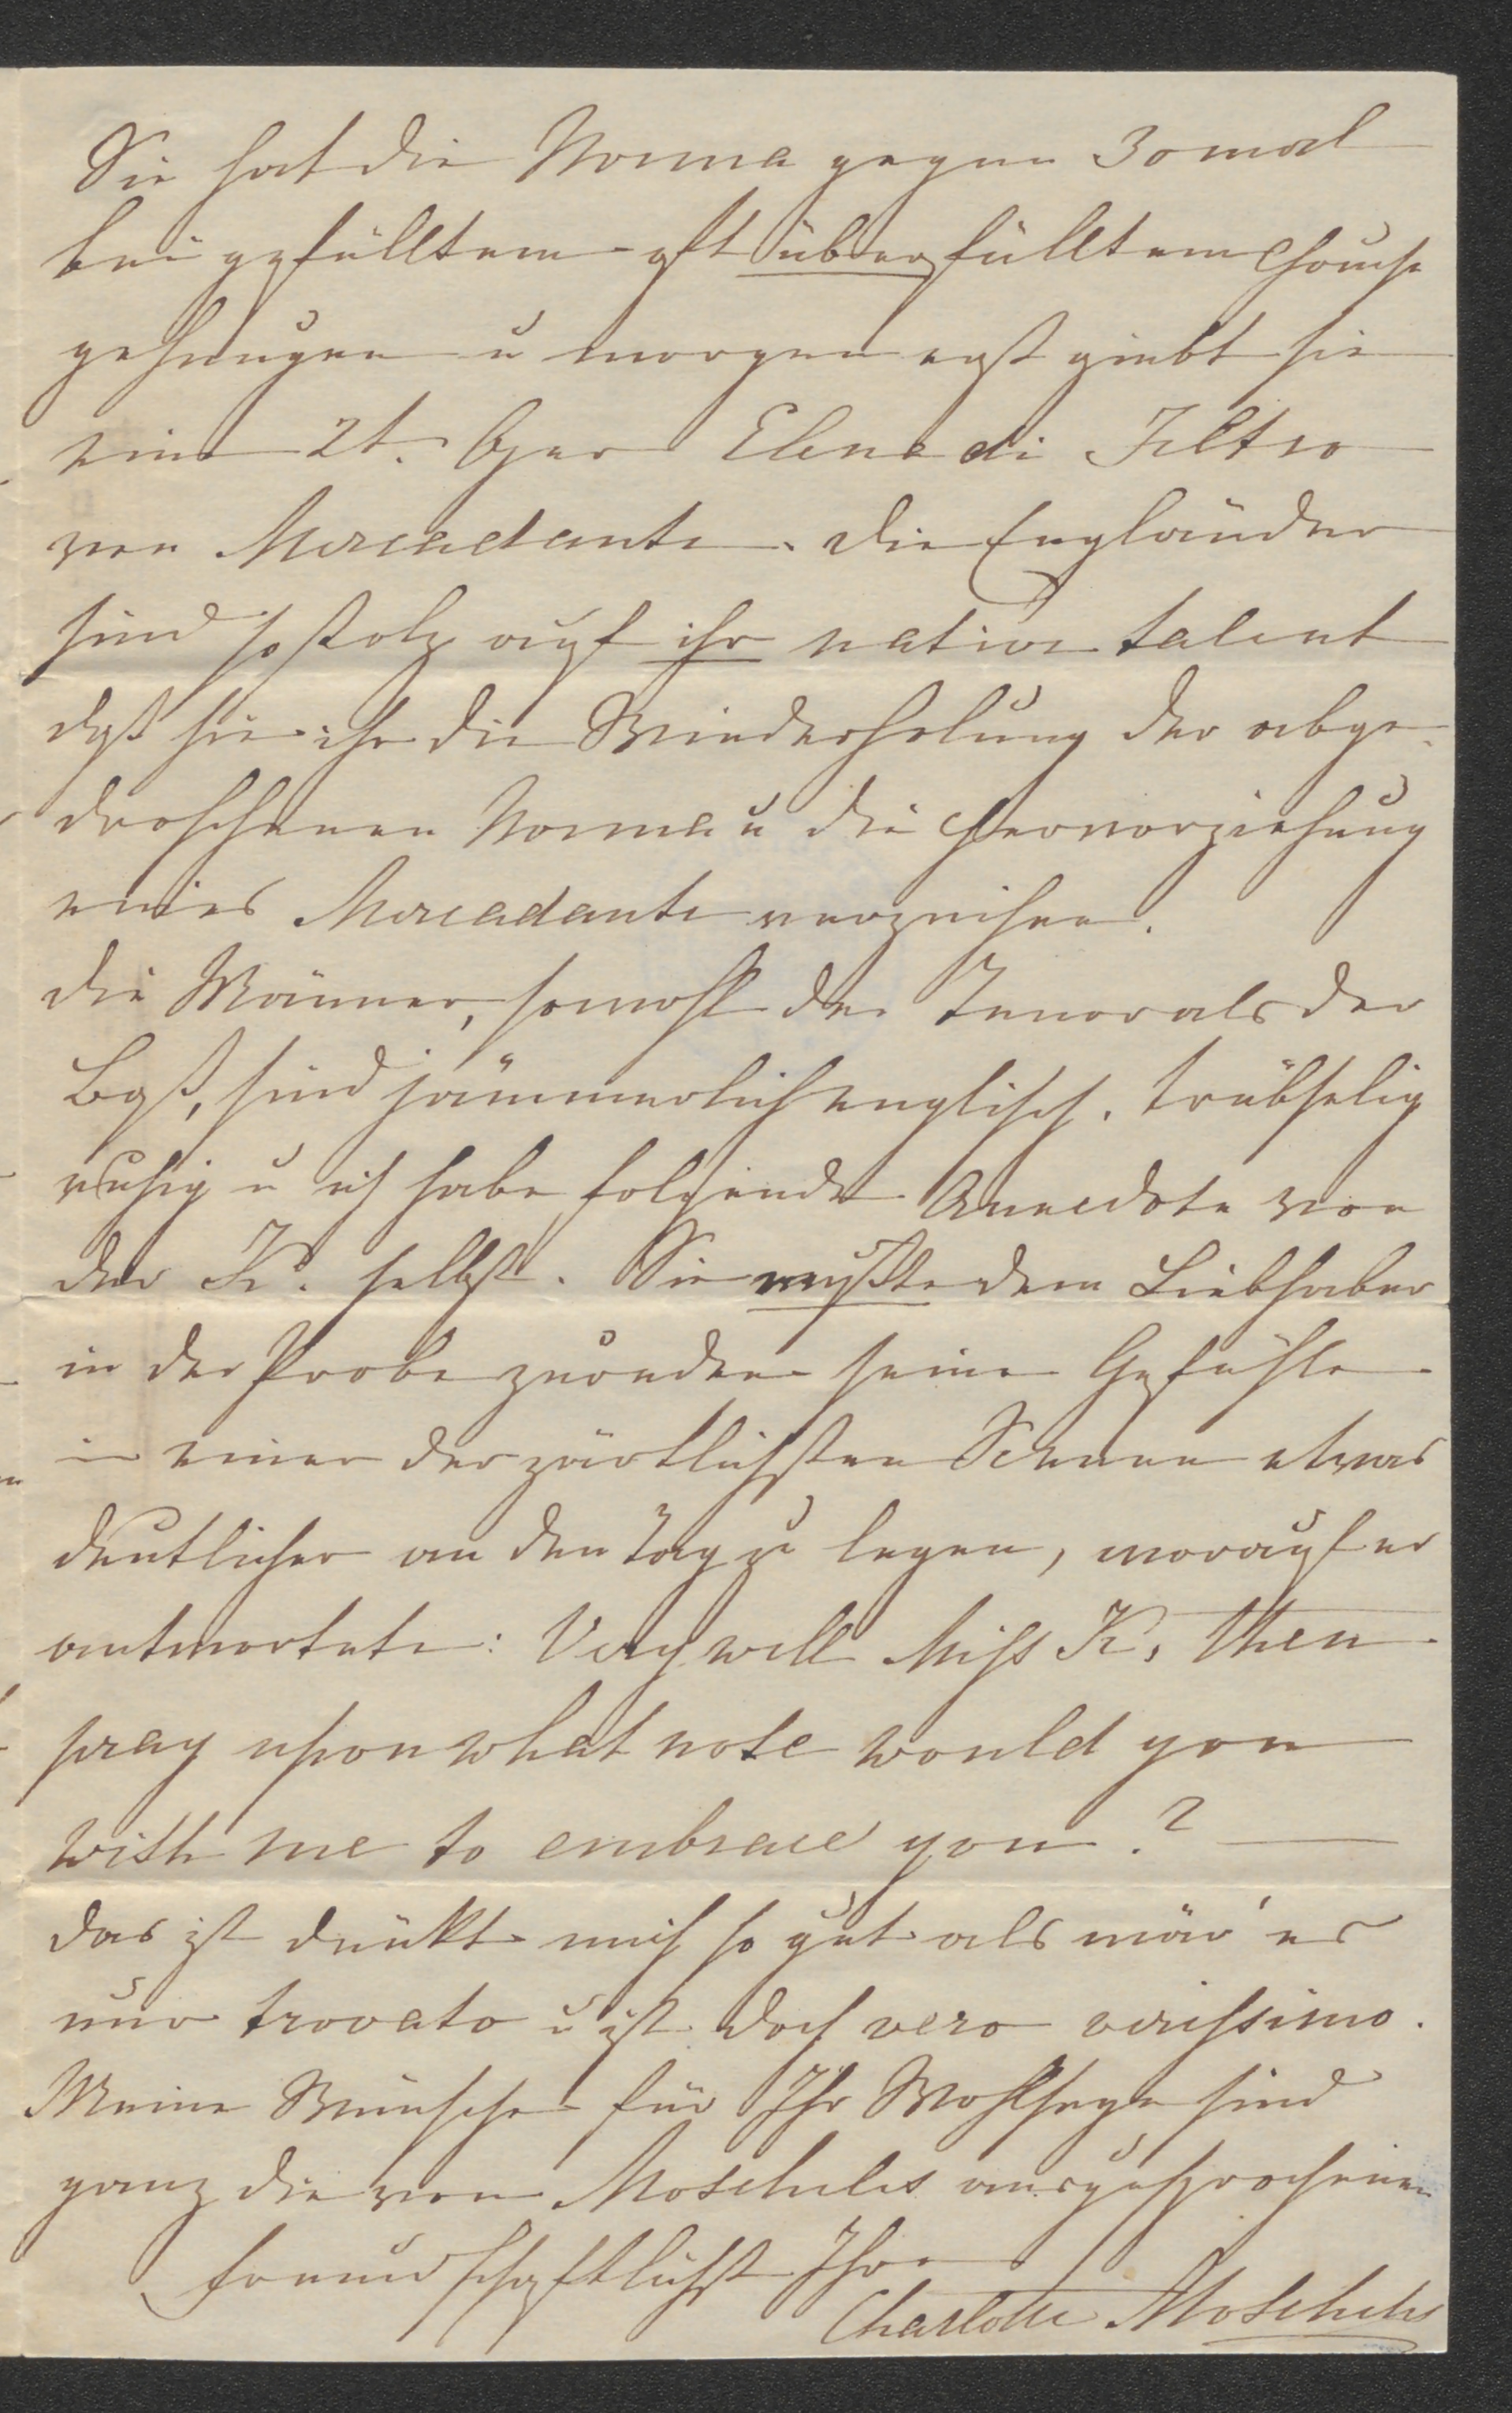 Sie hat die Norma gegen 30mal
bei gefülltem oft überfülltem Hause
gesungen u morgen erst giebt sie
eine 2t. Oper Elena di Feltro
von Mercadante. Die Engländer
sind so stolz auf ihr native talent
daß sie ihr die Wiederholung der abge-
droschenen Norma u die Hervorziehung
eines Mercadante verzeihen.
Die Männer, sowohl der Tenor als der
Baß, sind jämmerlich englisch, trübselig
ruhig u ich habe folgende Anecdote von
der K. selbst. Sie mußte dem Liebhaber
in der Probe zureden seine Gefühle
in einer der zärtlichsten Scenen etwas
deutlicher an den Tag zu legen, worauf er
antwortete: Very well Miss K, then
pray upon what note would you
wish me to embrace you?
Das ist dünkt mich so gut als wär' es
nur trovato u ist doch vero verissimo.
Meine Wünsche für Ihr Wohlseyn sind
ganz die von Moscheles ausgesprochenen
freundschaftlichst Ihre
Charlotte Moscheles